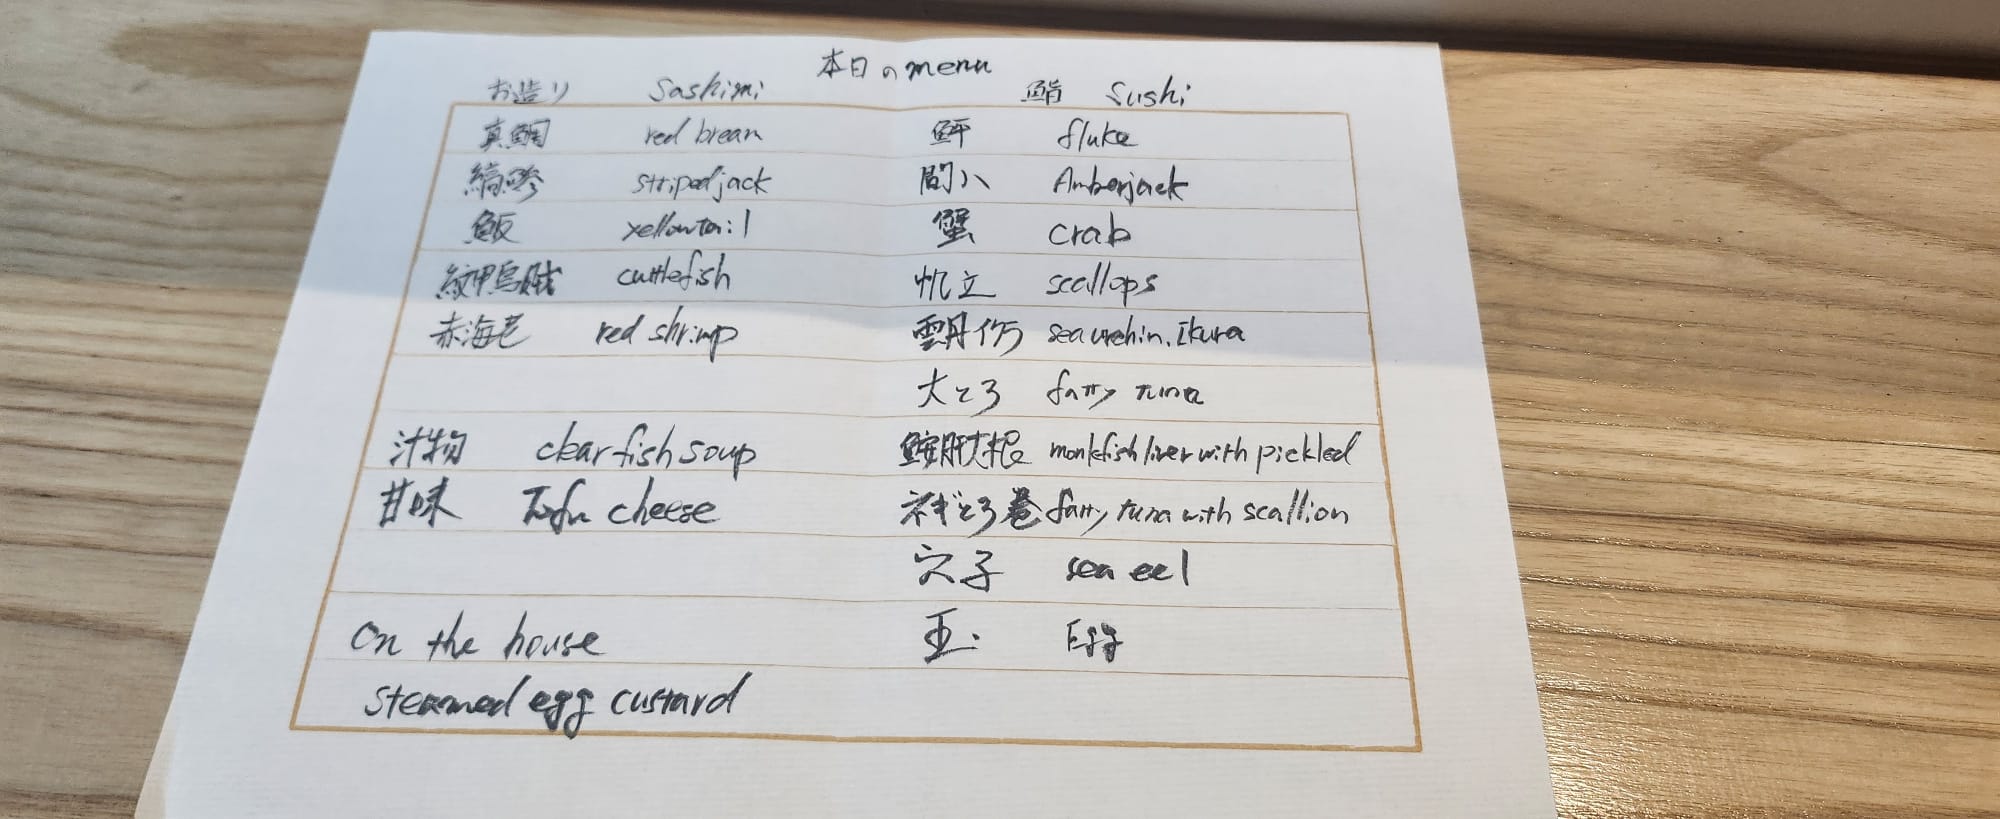 本日のmenu
お造り Sashimi 鮨 Sushi
真鯛 red bream 鮃 fluke
縞鯵 stripedjack 間八 Amberjack
鰤 yellowtail 蟹 crab
紋甲烏賊 cuttlefish 帆立 scallops
赤海老 red shrimp 雲丹 sea urchin. Ikura
大とろ fatty tuna
汁物 clear fish soup 鮟肝大根 monkfish liver with pickled
甘味 Tofu cheese ネギとろ巻 fatty tuna with scallion
穴子 sea eel
On the house 玉 Egg
steamed egg custard